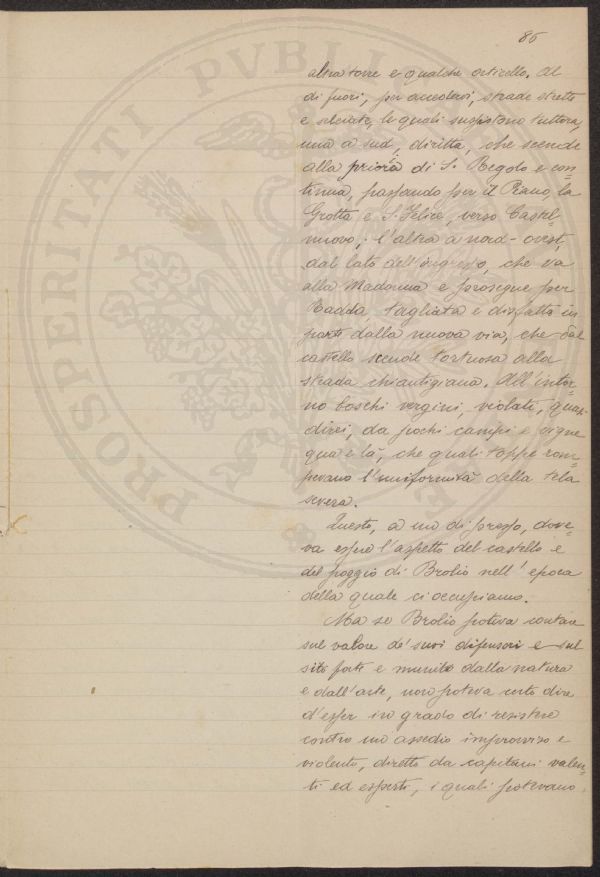 85
altra torre e qualche orticello. Al
di fuori, per accedervi, strade strette
e selciate, le quali sussistono tuttora,
una a sud, diritta, che scende
alla prioria di S. Regolo e con=
tinua, passando per il Piano, la
Grotta e S. Felice, verso Castel=
nuovo; l'altra a nord-ovest,
dal lato dell'ingresso, che va
alla Madonna e prosegue per
Radda, tagliata e disfatta in
parte dalla nuova via, che dal
castello scende tortuosa alla
strada chiantigiana. All'intor=
no boschi vergini, violati, quasi
direi, da pochi campi e vigne
qua e là, che quali toppe rom=
pevano l'uniformità della tela
severa.
Questo, a un di presso, dove=
va esser l'aspetto del castello e
del poggio di Brolio nell'epoca
della quale ci occupiamo.
Ma se Brolio poteva contare
sul valore de' suoi difensori e sul
sito forte e munito dalla natura
e dall'arte, non poteva certo dire
d'esser in grado di resistere
contro un assedio improvviso e
violento, diretto da capitani valen=
ti ed esperti, i quali potevano
PROSPERITATI PVBLICAE